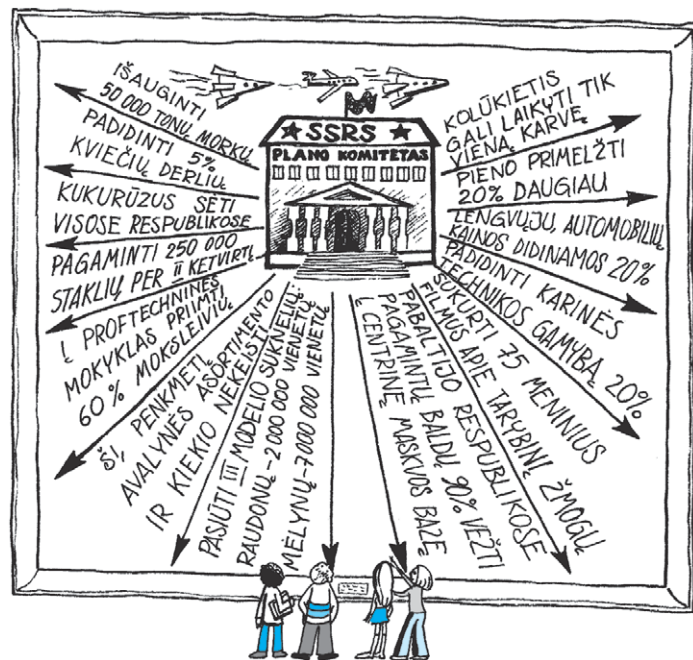 SSRS
PLANO KOMITETAS
IŠAUGINTI
50 000 TONŲ MORKŲ
PADIDINTI 5%
KVIEČIŲ DERLIŲ
KUKURŪZUS SĖTI
VISOSE RESPUBLIKOSE
PAGAMINTI 250 000
STAKLIŲ PER II KETVIRTĮ
Į PROFTECHNINES
MOKYKLAS PRIIMTI
60 % MOKSLEIVIŲ
ŠĮ PENKMETĮ
AVALYNĖS ASORTIMENTO
IR KIEKIO NEKEISTI
PASIŪTI III MODELIO SUKNELIŲ:
RAUDONŲ - 2 000 000 VIENETŲ
MĖLYNŲ - 7000 000 VIENETŲ
PABALTIJO RESPUBLIKOSE
PAGAMINTŲ BALDŲ 90% VEŽTI
Į CENTRINĘ MASKVOS BAZĘ
SUKURTI 75 MENINIUS
FILMUS APIE TARYBINĮ ŽMOGŲ
PADIDINTI KARINĖS
TECHNIKOS GAMYBĄ 20%
LENGVŲJŲ AUTOMOBILIŲ
KAINOS DIDINAMOS 20%
PIENO PRIMELŽTI
20% DAUGIAU
KOLŪKIETIS
GALI LAIKYTI TIK
VIENĄ KARVĘ